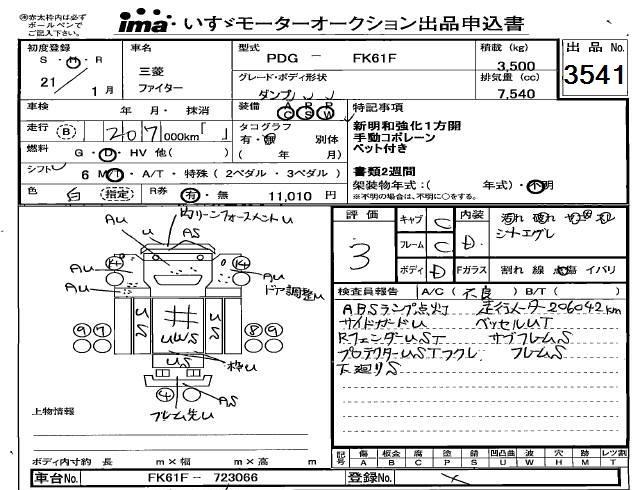 ※赤太枠内は必ず
ボールペンで
ご記入下さい。
ima いすゞモーターオークション出品申込書
初度登録
S・H・R
21 / 1 月
車名
三菱
ファイター
型式
PDG － FK61F
グレード・ボディ形状
ダンプ
積載 (kg)
3,500
排気量 (cc)
7,540
出品 No.
3541
車検 年 月・ 抹消
装備 AC PS PW
特記事項
新明和強化1方開
手動コボレーン
ベット付き
書類2週間
架装物年式：( 年式)・不明
※不明の場合は、不明に○をする。
走行 (B) 207,000km「 」
タコグラフ
有・無 別体
( 年 月)
燃料 G・D・HV 他( )
シフト 6 MT・A/T・特殊（2ペダル・3ペダル）
色 白 (指定) R券 有・無 11,010 円
評価
3
キャブ C
フレーム C
ボディ D
内装 D
シートエグレ
Fガラス 割れ 線 点傷 イバリ
検査員報告 A/C( 不良 ) B/T( )
ABSランプ点灯 走行メーター206042km
サイドガードU ベッセルUT
RフェンダーUST サブフレームS
プロテクターUSTフクレ フレームS
下廻りS
内リーンフォースメントU
AU
U
AS
AU
AU
AU
ドア調整U
US
UWS
US
US
枠U
AS
フレーム先U
上物情報
ボディ内寸約 長 m×幅 m×高 m
記号 傷 A 板金 B 腐 C 塗 P 錆 S 凹凸曲 U 波 W 穴 H 跡 M レツ割 T
車台No. FK61F－ 723066
登録No.